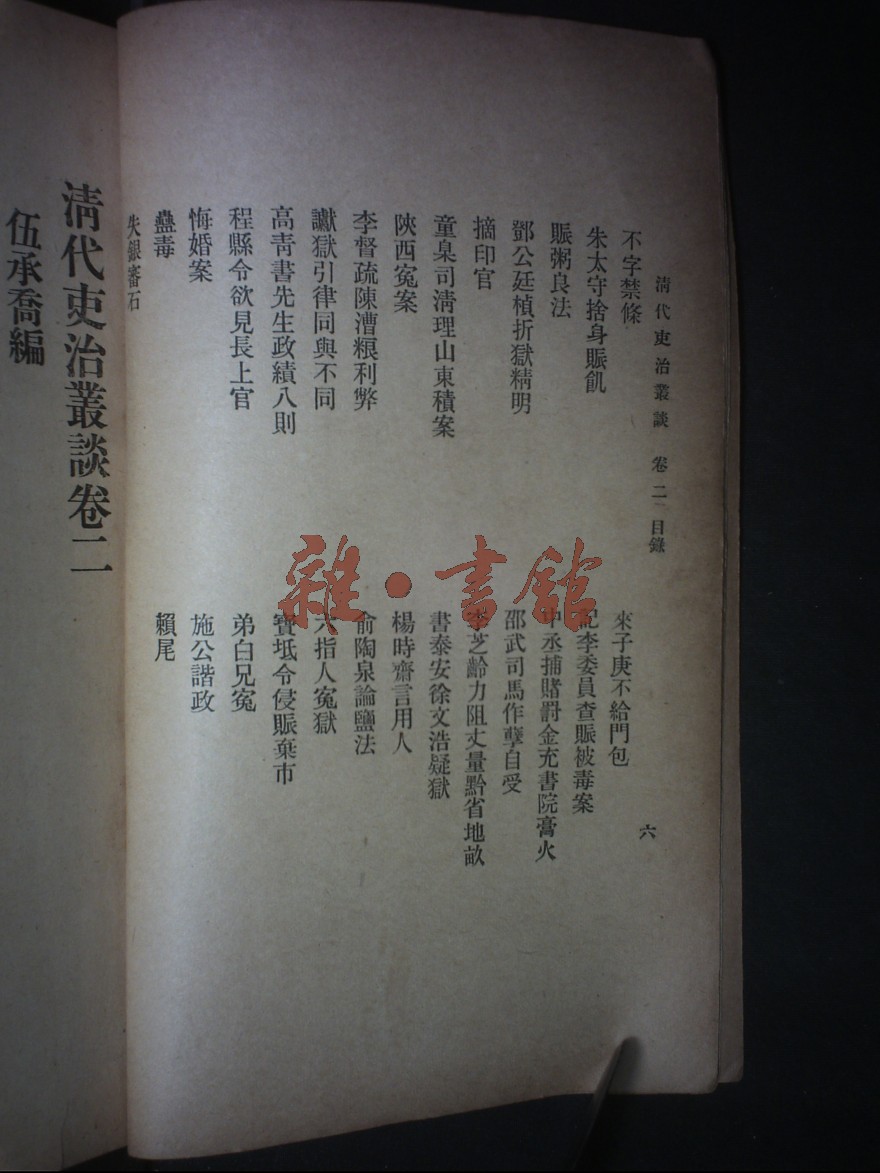 清代吏治叢談 卷二 目錄
六
不字禁條
來子庚不給門包
朱太守捨身賑飢
記李委員查賑被毒案
賑粥良法
中丞捕賭罰金充書院膏火
鄧公廷楨折獄精明
邵武司馬作孽自受
摘印官
李芝齡力阻丈量黔省地畝
童臬司清理山東積案
書泰安徐文浩疑獄
陝西冤案
楊時齋言用人
李督疏陳漕粮利弊
俞陶泉論鹽法
讞獄引律同與不同
六指人冤獄
高青書先生政績八則
寶坻令侵賑棄市
程縣令欲見長上官
弟白兄冤
悔婚案
施公諧政
蠱毒
賴尾
失銀審石
清代吏治叢談卷二
伍承喬編
雜·書館